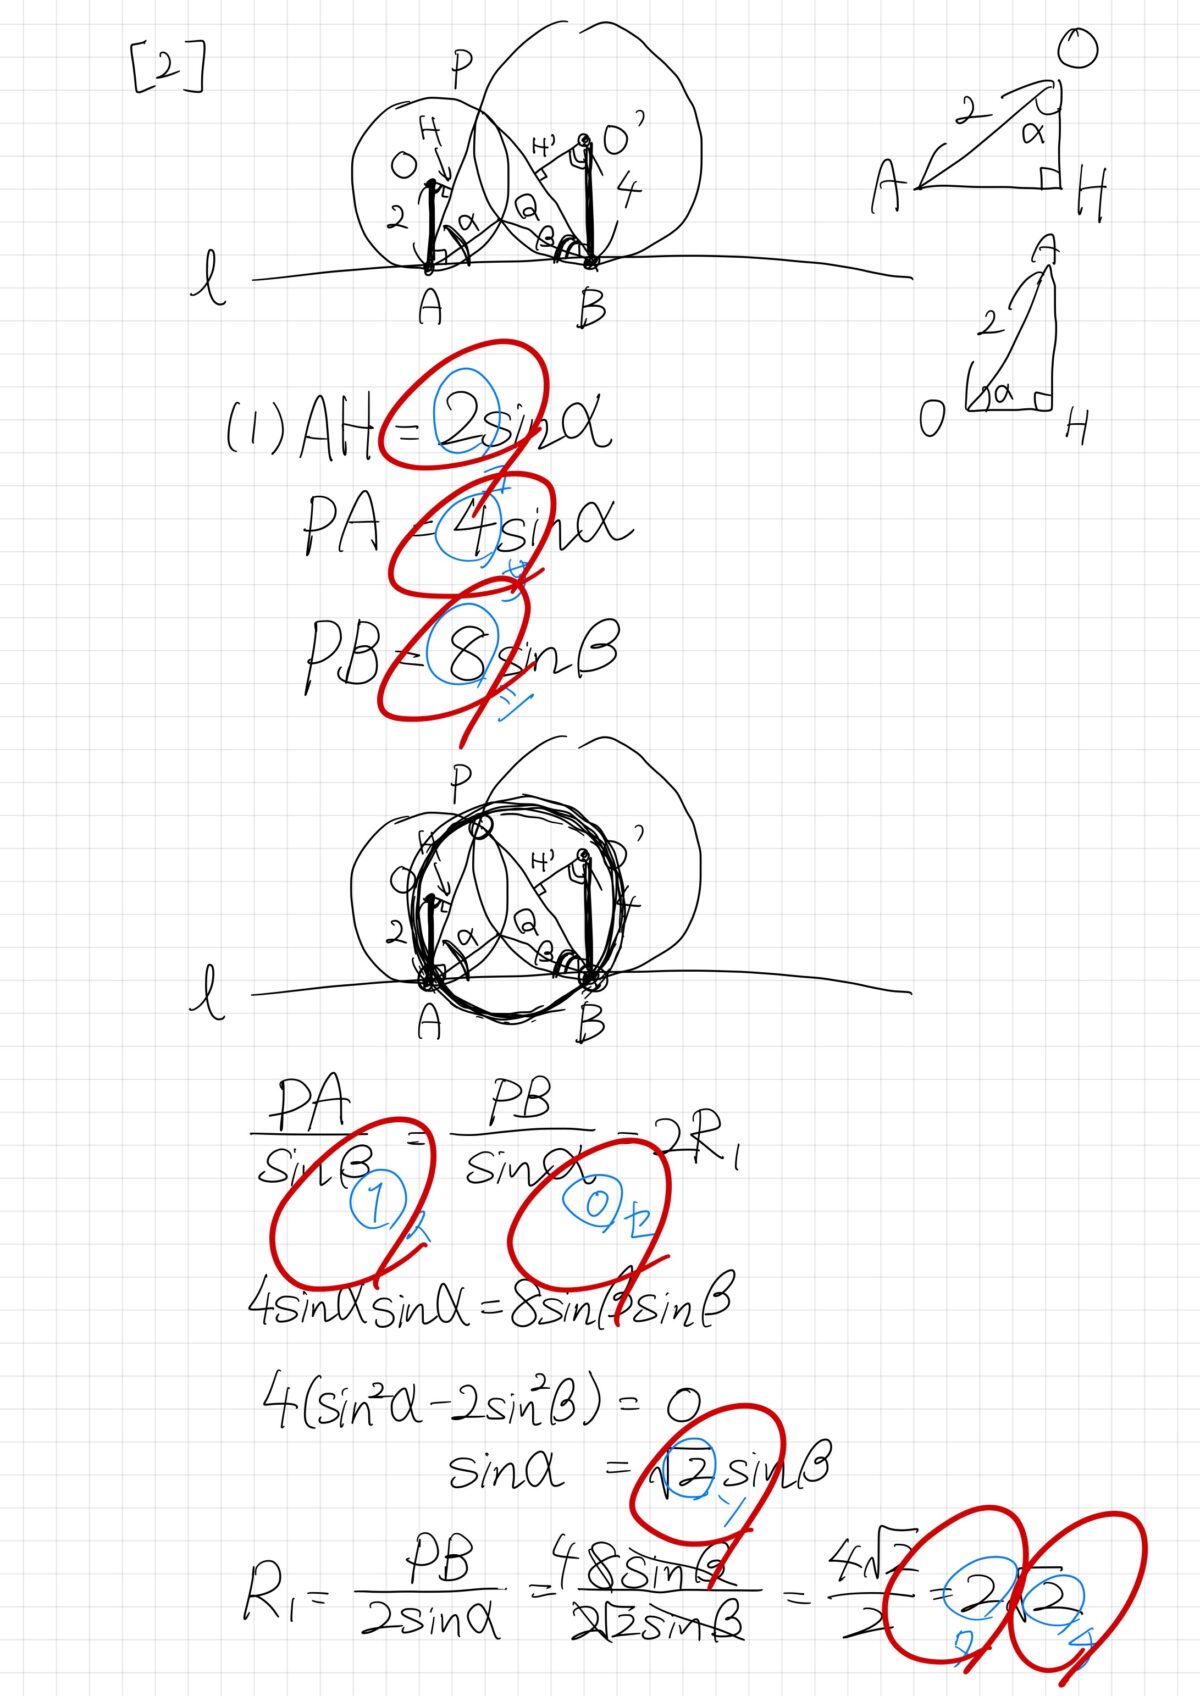 [2]
P
H
O
2
α
H'
O'
4
Q
β
l
A
B
O
2
α
A
H
A
2
α
O
H
(1) AH = 2sinα
PA = 4sinα
PB = 8sinβ
P
H
O
2
α
H'
O'
4
Q
β
l
A
B
PA/sinβ = PB/sinα = 2R₁
① ス
⓪ セ
4sinαsinα = 8sinβsinβ
4(sin²α-2sin²β) = 0
sinα = √2 sinβ
ソ
R₁ = PB/2sinα = 4 8sinβ/2√2sinβ = 4√2/2 = 2√2
タ チ